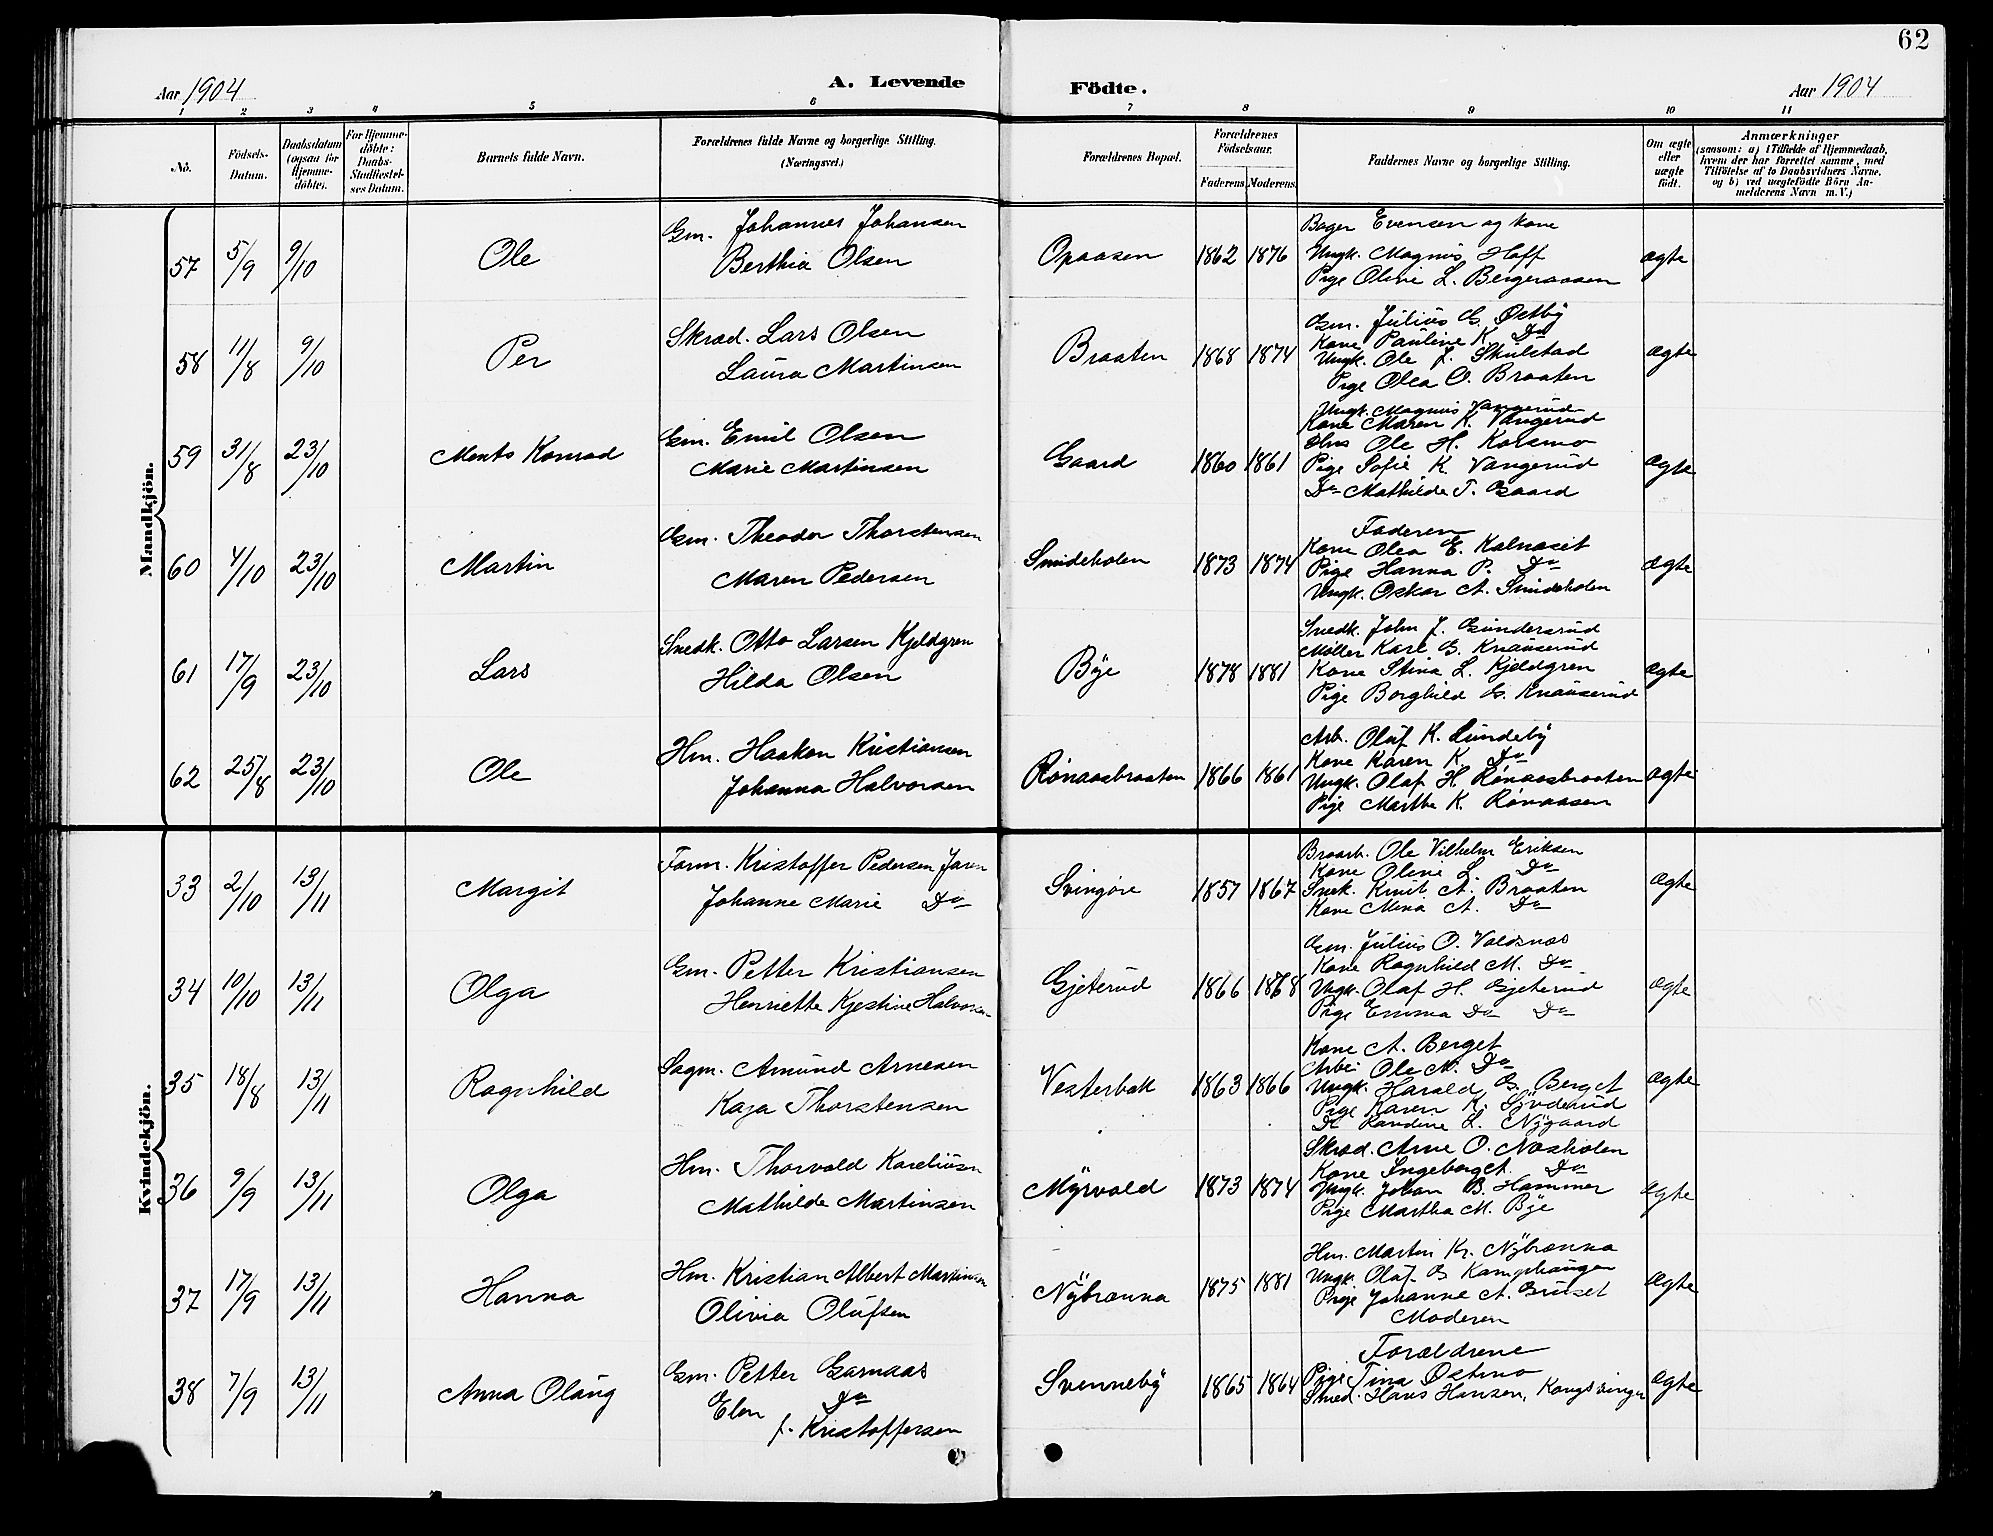 62
Aar 1904
A. Levende
Födte.
Aar 1904
1 2 3 4 5 6 7 8 9 10 11
No.
Födsels-Datum.
Daabsdatum (ogsaa for Hjemme-döbte).
For Hjemme-döbte: Daabs-Stadfæstel-ses Datum.
Barnets fulde Navn.
Forældrenes fulde Navne og borgerlige Stilling. (Næringsvei.)
Forældrenes Bopæl.
Forældrenes Födselsaar.
Faderens. Moderens.
Faddernes Navne og borgerlige Stilling.
Om ægte eller uægte födt.
Anmærkninger
(saasom: a) i Tilfælde af Hjemmedaab, hvem der har forrettet samme, med Tilföielse af to Daabsvidners Navne, og b) ved uægtefödte Börn An-melderens Navn m. V.)
Mandkjön.
57 5/9 9/10 Ole
Gm. Johannes Johansen
Berthia Olsen
Opaasen 1862 1876
Bager Evensen og Kone
Ungk. Magnus Hoff
Pige Oline L. Bergeraasen
ægte
58 11/8 9/10 Per
Skræd. Lars Olsen
Laura Martinsen
Braaten 1868 1874
Gm. Julius G. Østby
Kone Pauline K. Do
Ungk. Ole J. Skulstad
Pige Olea O. Braaten
ægte
59 31/8 23/10 Ments Konrad
Gm. Emil Olsen
Marie Martinsen
Gaard 1860 1861
Ungk. Magnus Vangerud
Kone Maren K. Vangerud
Ole H. Korsmo
Pige Sofie K. Vangerud
Do Mathilde T. Gaard
ægte
60 4/10 23/10 Martin
Gm. Theodor Thorstensen
Maren Pedersen
Smideholen 1873 1874
Faderen
Kone Olea E. Kalnæset
Pige Hanna P. Do
Ungk. Oskar A. Smideholen
ægte
61 17/9 23/10 Lars
Snedk. Otto Larsen Kjeldgren
Hilda Olsen
Bÿe 1878 1881
Snedk. John J. Gundersrud
Møller Karl G. Knauserud
Kone Stina L. Kjeldgren
Pige Borghild G. Knauserud
ægte
62 25/8 23/10 Ole
Hm. Haakon Kristiansen
Johanna Halvorsen
Rønaasbraaten 1866 1861
Arb. Oluf K. Lundeby
Kone Karen K. Do
Ungk. Olaf H. Rønaasbraaten
Pige Marthe K. Rønaasen
ægte
Kvindekjön.
33 2/10 13/11 Margit
Form. Kristoffer Pedersen Jaren
Johanne Marie Do
Svingøre 1857 1867
Ole Vilhelm Eriksen
Kone Oline L. Do
Snek. Knut A. Braaten
Kone Mina A. Do
ægte
34 10/10 13/11 Olga
Gm. Petter Kristiansen
Henriette Kjestine Halvorsen
Gjeterud 1866 1868
Gm. Julius O. Valdsnæs
Kone Ragnhild M. Do
Ungk. Olaf H. Gjeterud
Pige Emma Do Do
ægte
35 18/8 13/11 Ragnhild
Sagm. Amund Arnesen
Kaja Thorstensen
Vesterbæk 1863 1866
Kone A. Berget
Ole M. Do
Ungk. Harald G. Berget
Pige Karen K.
Do Randine L. Nÿgaard
ægte
36 9/9 13/11 Olga
Hm. Thorvald Kareliusen
Mathilde Martinsen
Mÿrvold 1873 1874
Skræd. Arne O. Næsholen
Kone Ingeborg A. Do
Ungk. Johan B. Hammer
Pige Martha M. Bÿe
ægte
37 17/9 13/11 Hanna
Hm. Kristian Albert Martinsen
Olivia Olufsen
Nÿbrænna 1875 1881
Hm. Martin Kr. Nÿbrænna
Ungk. Oluf B Kamphaugen
Pige Johanne A. Bruset
Moderen
ægte
38 7/9 13/11 Anna Olaug
Gm. Petter Garnaas
Elen Do
f. Kristoffersen
Svennebÿ 1865 1864
Forældrene
Pige Tina Østmo
Smed. Hans Hansen, Kongsvinger
ægte